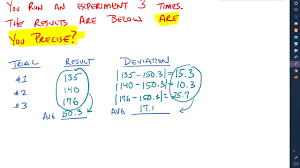 YOU RUN AN EXPERIMENT 3 TIMES.
THE RESULTS ARE BELOW ARE
YOU PRECISE?
TRIAL RESULT DEVIATION
#1 135 |135-150.3|= 15.3
#2 140 |140-150.3|= 10.3
#3 176 |176-150.3|= 25.7
AVG 150.3 AVG 17.1